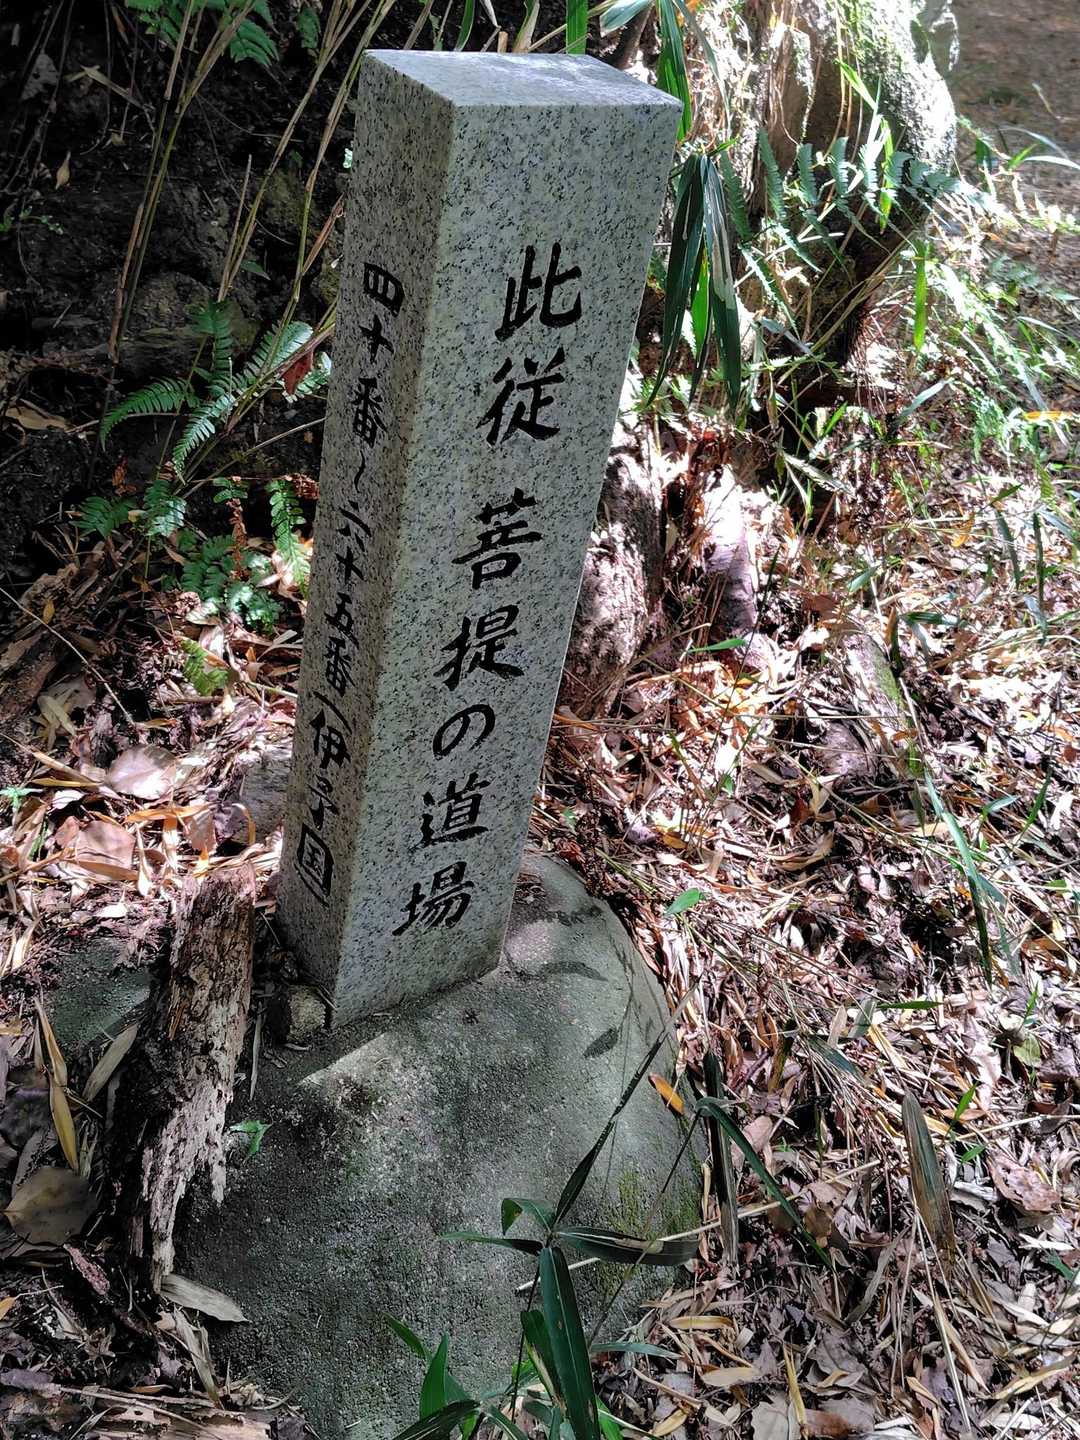 此従菩提の道場
四十番~六十五番(伊予国